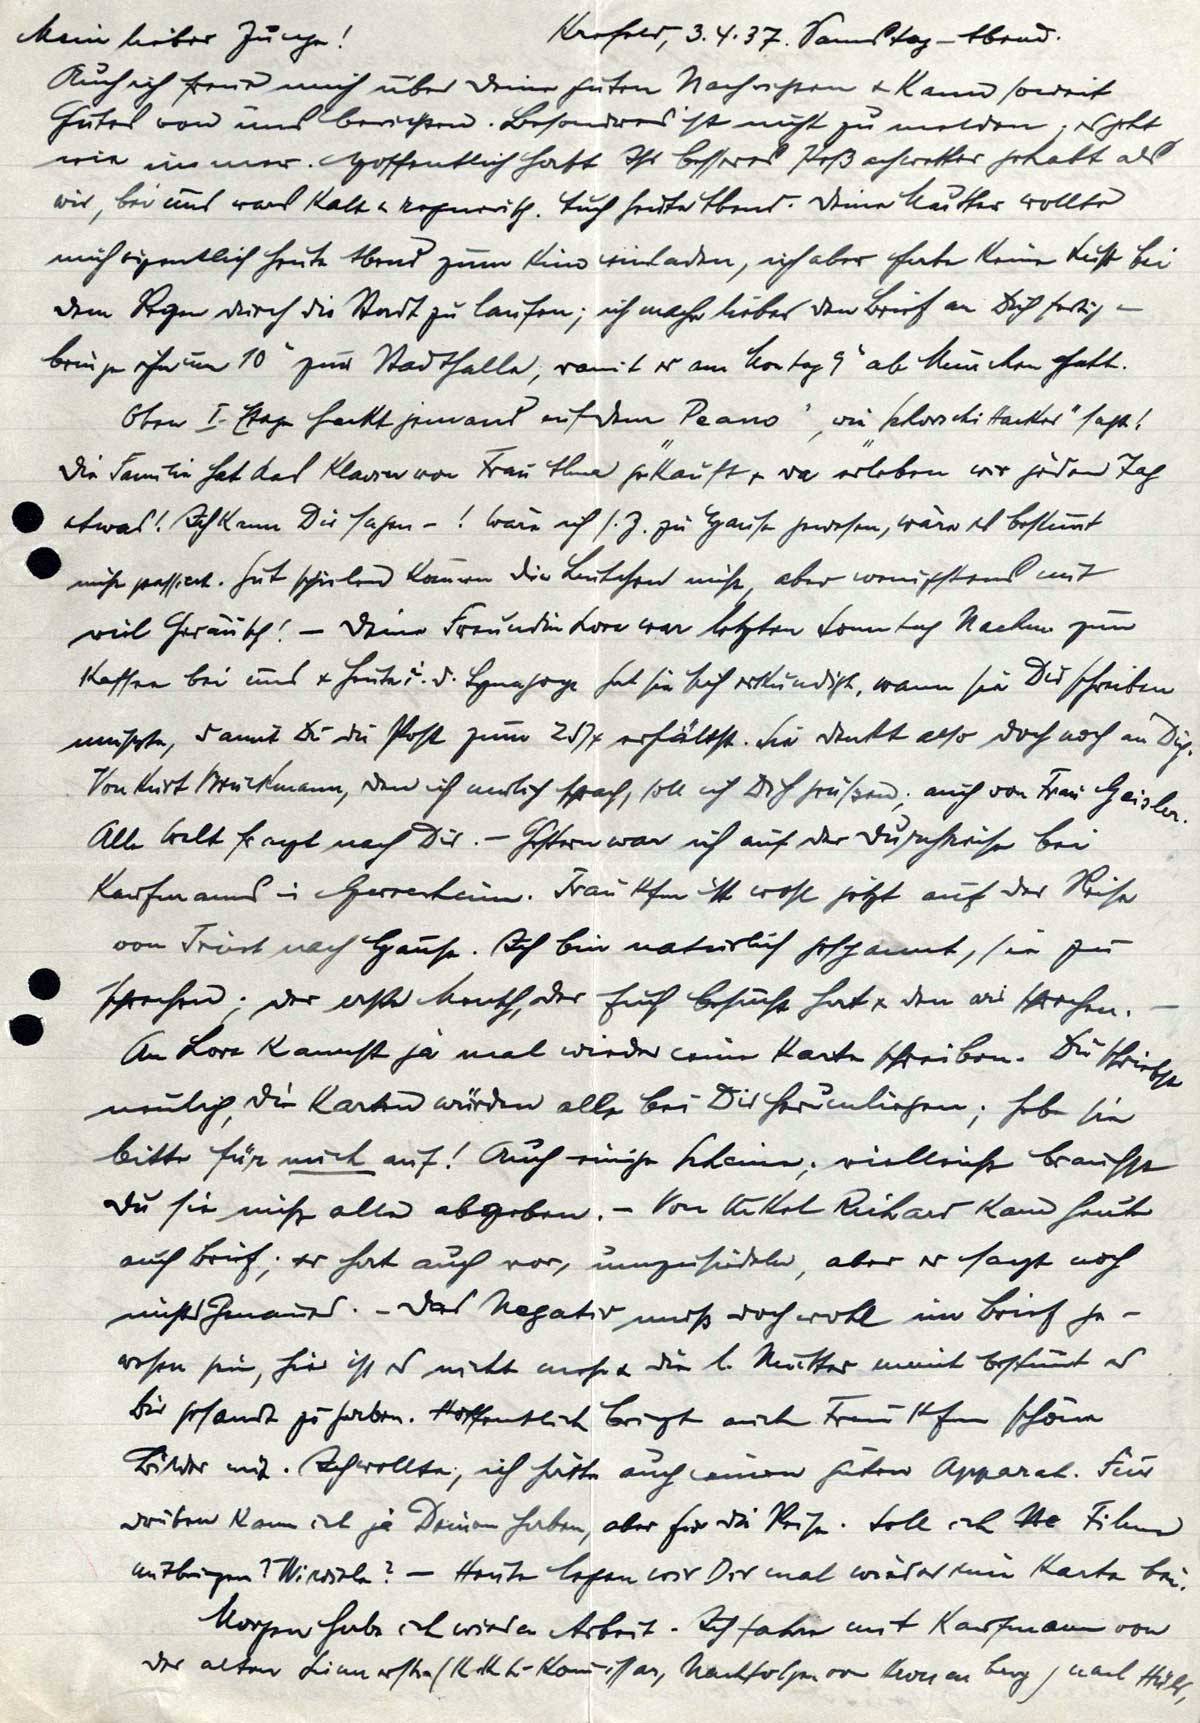 Mein lieber Junge! Krefeld, 3.4.37. Samstag-Abend.
Auch ich freue mich über Deine guten Nachrichten & kann soweit
Gutes von uns berichten. Besonderes ist nicht zu melden; es geht
wie immer. Hoffentlich habt Ihr besseres Peßachwetter gehabt als
wir, bei uns wars kalt u. regnerisch. Auch heute Abend. Deine Mutter wollte
mich eigentlich heute Abend zum Kino einladen, ich aber habe keine Lust bei
dem Regen durch die Stadt zu laufen; ich mache lieber den Brief an Dich fertig –
bringe ihn um 10° zur Stadthalle, damit er am Montag 9° ab München geht.
Oben I. Etage hackt jemand auf dem "Peano", wie "Schorschi Hacker" sagt!
Die Familie hat das Klavier von Frau Alma gekauft & da erleben wir jeden Tag
etwas! Ich kann Dir sagen – ! Wäre ich s. Z. zu Hause gewesen, wäre es bestimmt
nicht passiert. Gut spielen können die Leutchen nicht, aber wenigstens mit
viel Geräusch! – Deine Freundin Lore war letzten Sonntag Nachm. zum
Kaffee bei uns & heute i. d. Synagoge hat sie sich erkundigt, wann sie Dir schreiben
müsste, damit Du die Post zum 25/4 erhältst. Sie denkt also doch noch an Dich.
Von Kurt Bruckmann, den ich neulich sprach, soll ich Dich grüßen; auch von Frau Geisler.
Alle Welt fragt nach Dir. – Gestern war ich auf der Durchreise bei
Kaufmanns in Gerresheim. Frau Kfm ist wohl jetzt auf der Reise
von Triest nach Hause. Ich bin natürlich gespannt, sie zu
sprechen; der erste Mensch, der Euch besucht hat & den wir sprechen. –
An Lore kannst ja mal wieder eine Karte schreiben. Du schriebst
neulich, die Karten würden alle bei Dir herumliegen; hebe sie
bitte für mich auf! Auch einige Scheine; vielleicht brauchst
Du sie nicht alle abgeben. – Von Onkel Richard kam heute
auch Brief; er hat auch vor, umzusiedeln, aber er sagt noch
nichts Genaues. – Das Negativ muß doch wohl im Brief ge-
wesen sein, hier ist es nicht mehr & die l. Mutter meint bestimmt es
Dir gesandt zu haben. Hoffentlich bringt auch Frau Kfm schöne
Bilder mit. Ich wollte, ich hätte auch einen guten Apparat. Für
drüben kann ich ja Deinen haben, aber für die Reise. Soll ich Filme
mitbringen? Wieviele? – Heute legen wir Dir mal wieder eine Karte bei.
Morgen habe ich wieder Arbeit. Ich fahre mit Kaufmann von
der alten Linnerstraße Nachfolger von Kronenberg) nach Hüls,